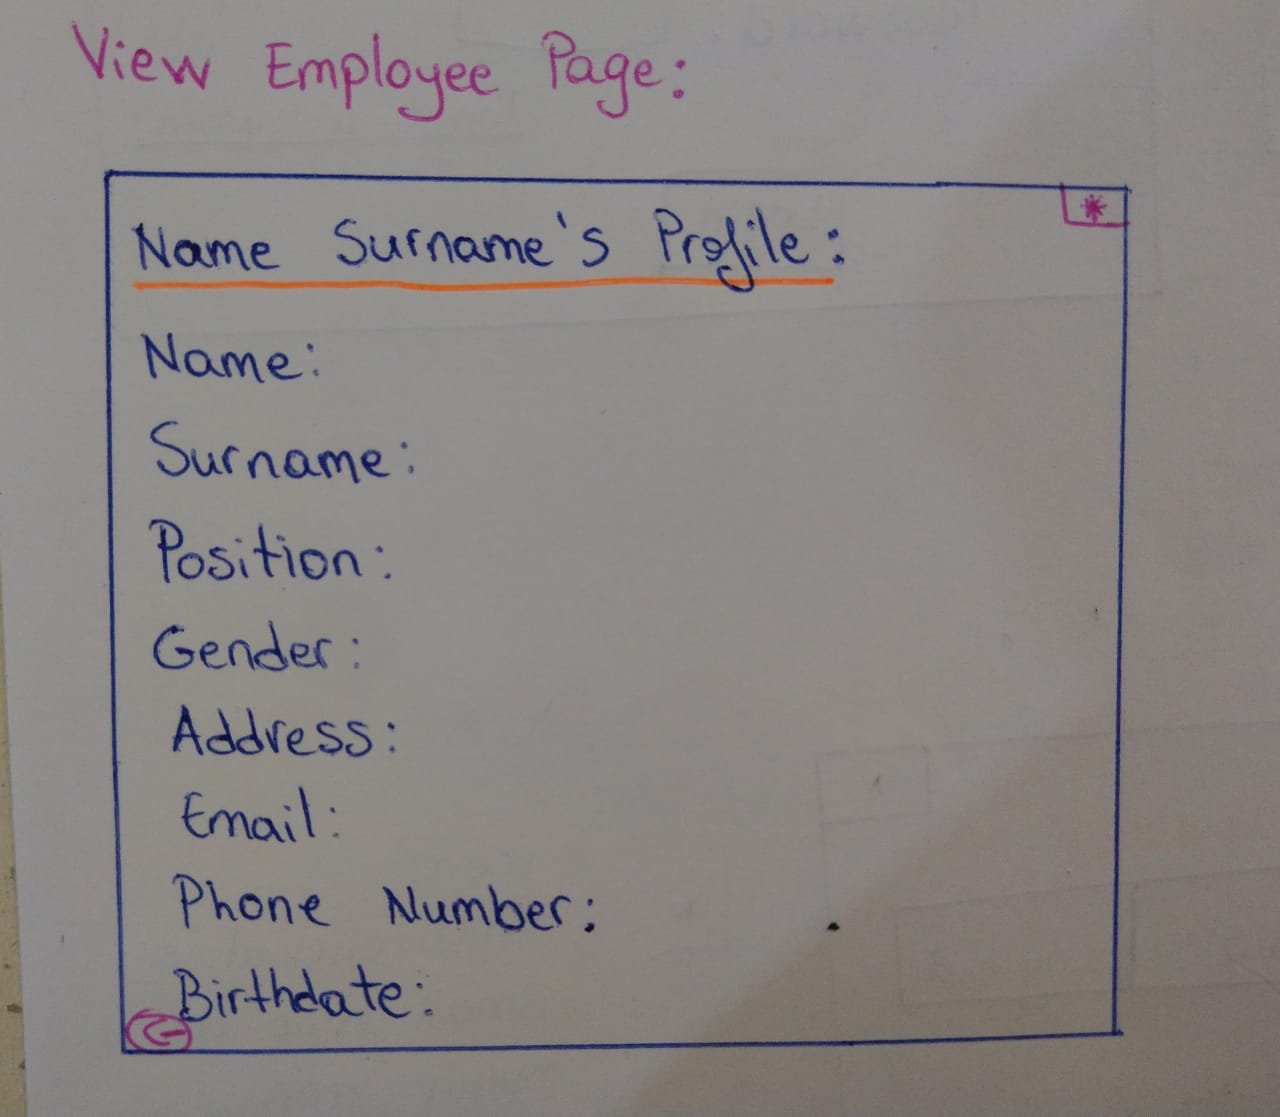 View Employee Page:
*
Name Surname's Profile:
Name:
Surname:
Position:
Gender:
Address:
Email:
Phone Number:
Birthdate: